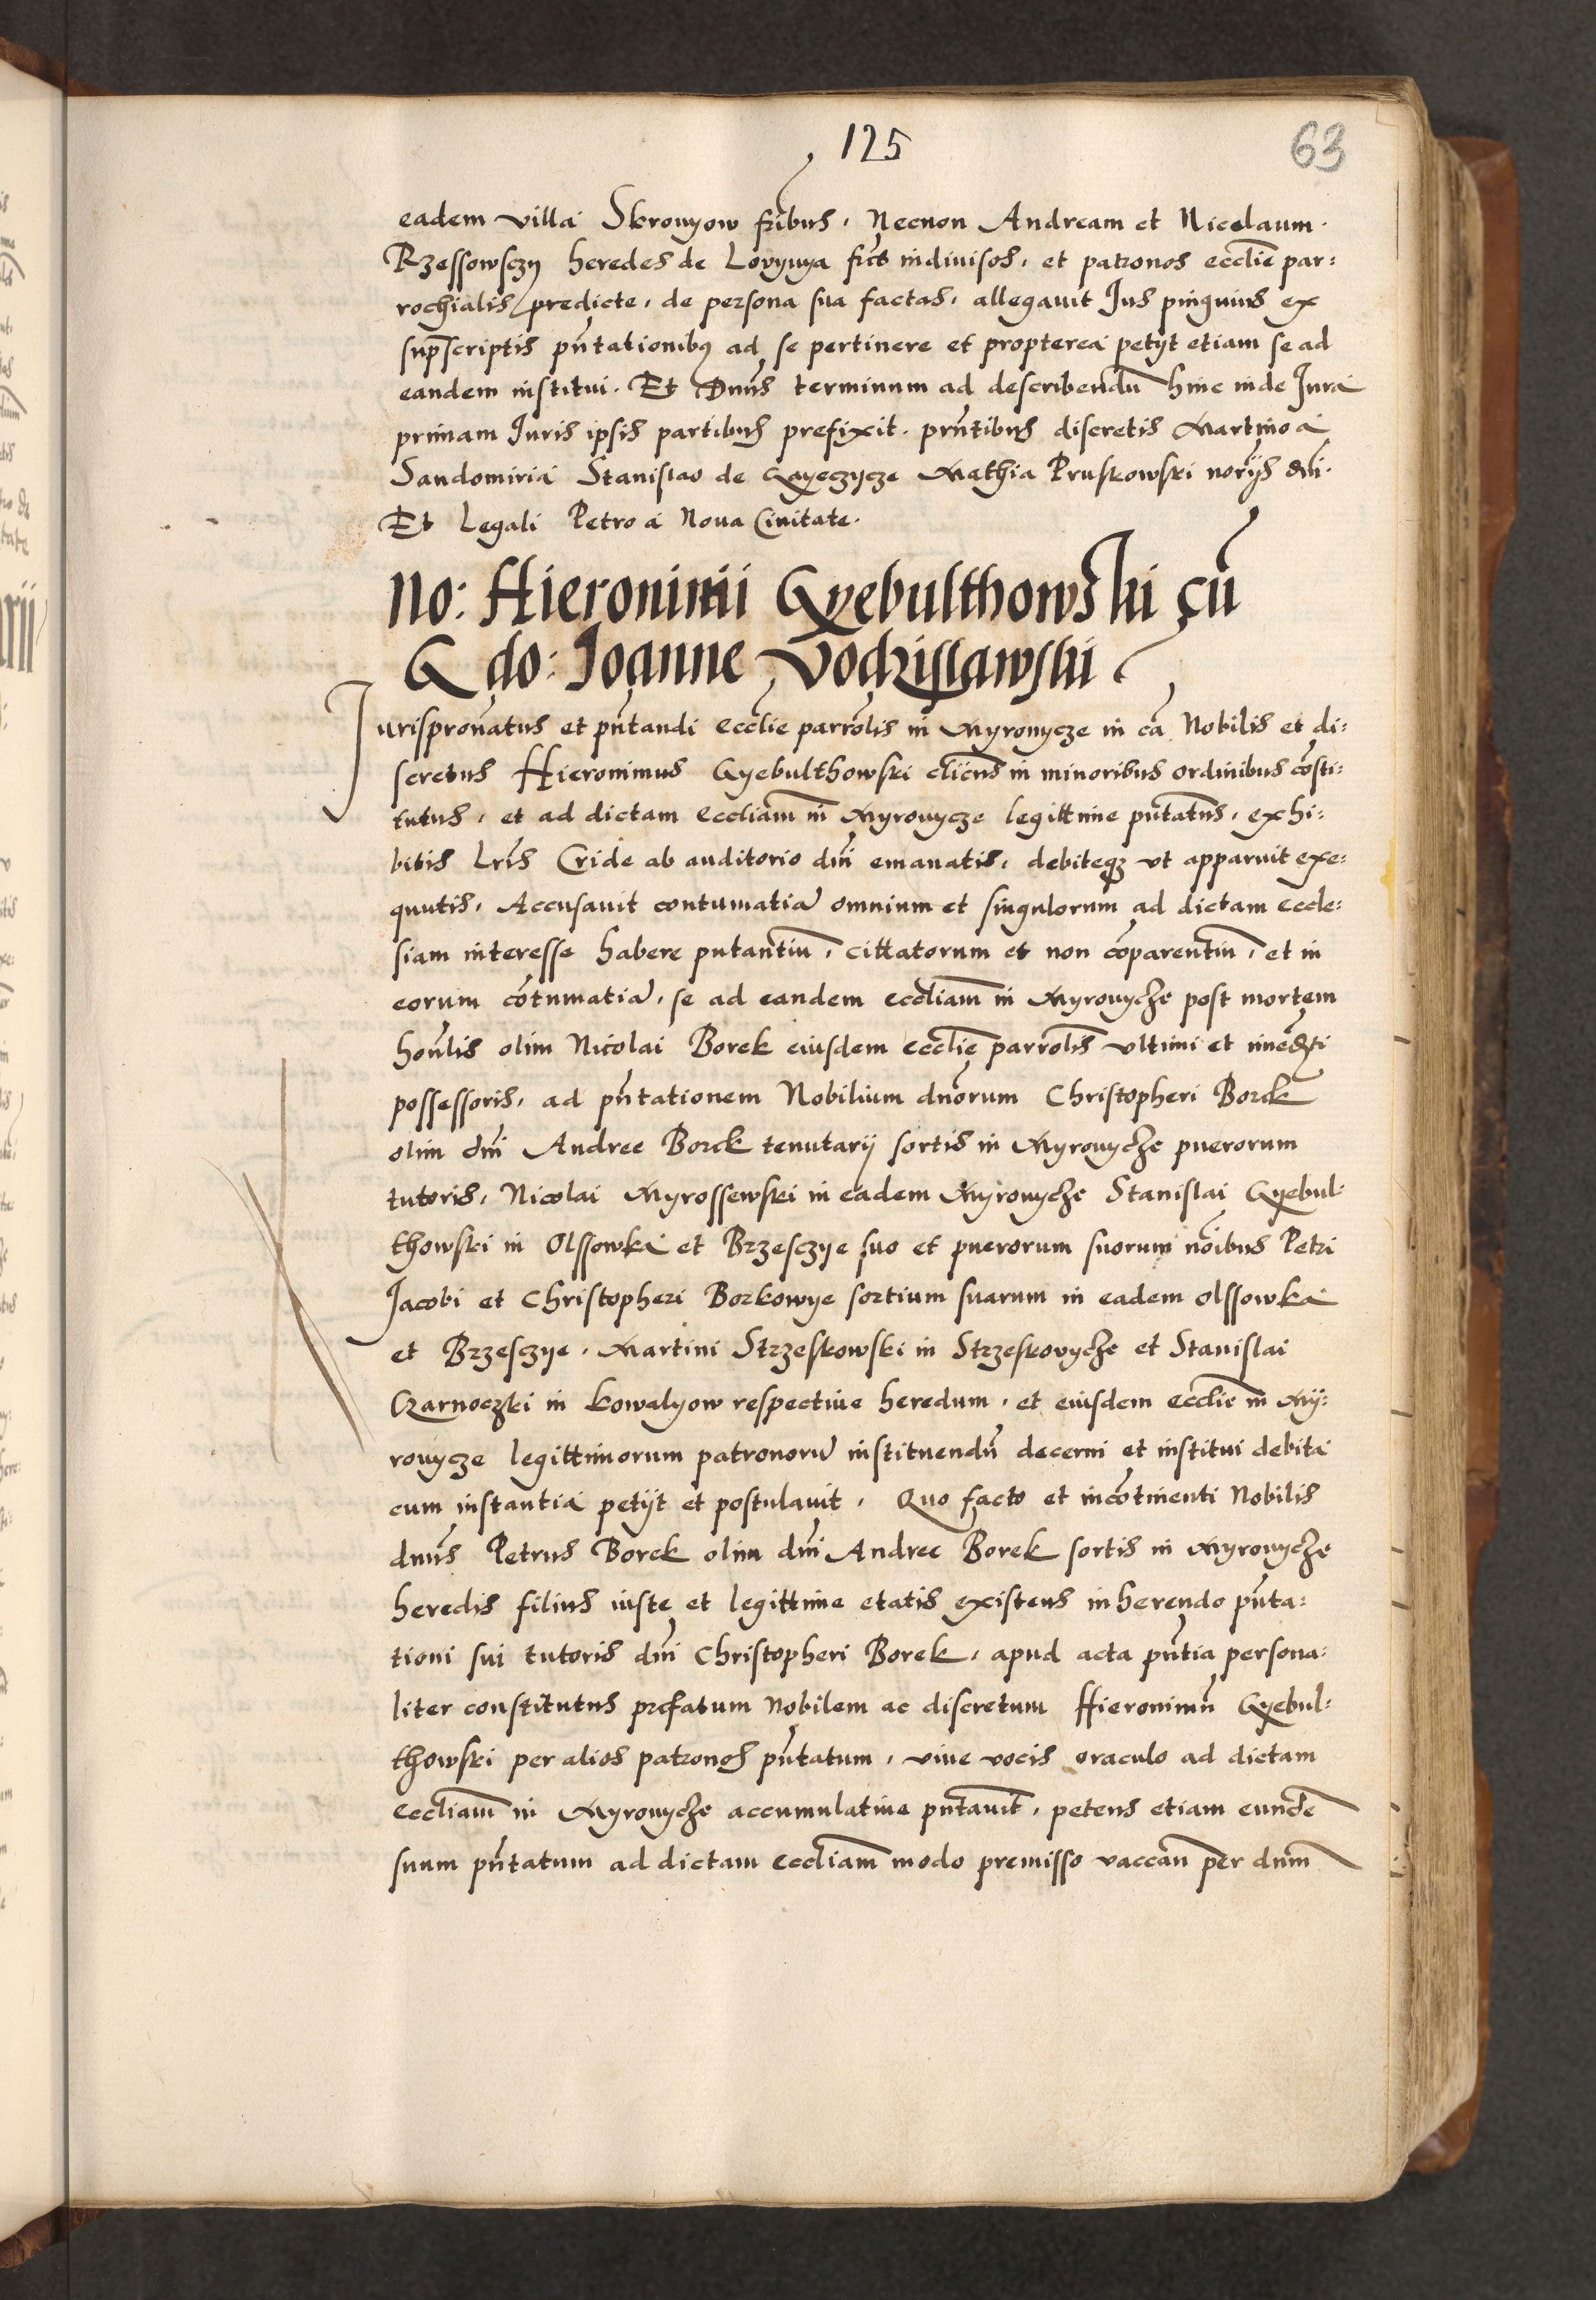 125
63
eadem villa Skronyow fribus, Necnon Andream et Nicolaum
Rzessowsczy heredes de Lovynya frēs indivisos, et patronos ecclie par:
rochialis predicte, de persona sua factas, allegavit Jus pinguius ex
supscriptis pntationibq ad se pertinere et propterea petyt etiam se ad
eandem institui. Et Dnus terminum ad describendū hinc inde Jura
primam Juris ipsis partibus prefixit. prntibus discretis Martino a
Sandomiria Stanislao de Gayeczycze Mathia Pruskowski norijs dni.
Et Legali Petro a Nova Civitate.
No: Hieronimi Gyebulthowski cū
G do: Joanne Vodzislawski
Jurispronatus et pntandi Ecclie parrolis in Myronycze in ca Nobilis et di:
scretus Hieronimus Gyebulthowski cliens in minoribus ordinibus costi:
tutus, et ad dictam eccliam in Myronycze legittime pntatus, exhi:
bitis Lris Cride ab auditorio dni emanatis, debiteqz vt apparuit exe:
quutis, Accusavit contumatiā omnium et singulorum ad dictam eccle:
siam interesse habere putantiū, cittatorum et non coparentiū, et in
eorum cotumatiā, se ad eandem eccliam in Myronycze post mortem
honlis olim Nicolai Borek eiusdem ecclie parrolis vltimi et imediti
possessoris, ad pntationem Nobilium dnorum Christopheri Borek
olim dni Andree Borek tenutarij sortis in Myronycze puerorum
tutoris, Nicolai Myrossewski in eadem Myronycze Stanislai Gyebul:
thowski in Olssowka et Brzesczye suo et puerorum suorum noibus Petri
Jacobi et Christopheri Borkowye sortium suarum in eadem Olssowka
et Brzesczye, Martini Strzeskowski in Strzeskovycze et Stanislai
Czarnoczki in Kowalyow respective heredum, et eiusdem ecclie in My:
ronycze legittimorum patronorū instituendū decerni et institui debita
cum instantia petyt et postulavit, Quo facto et incotinenti Nobilis
dnus Petrus Borek olim dni Andree Borek sortis in Myronycze
heredis filius iuste et legittime etatis existens inherendo pnta:
tioni sui tutoris dni Christopheri Borek, apud acta pntia persona:
liter constitutus prefatum Nobilem ac discretum Hieronimū Gyebul:
thowski per alios patronos pntatum, vive vocis oraculo ad dictam
eccliam in Myronycze accumulative pntavit, petens etiam eundē
suum pntatum ad dictam eccliam modo premisso vaccan per dnm